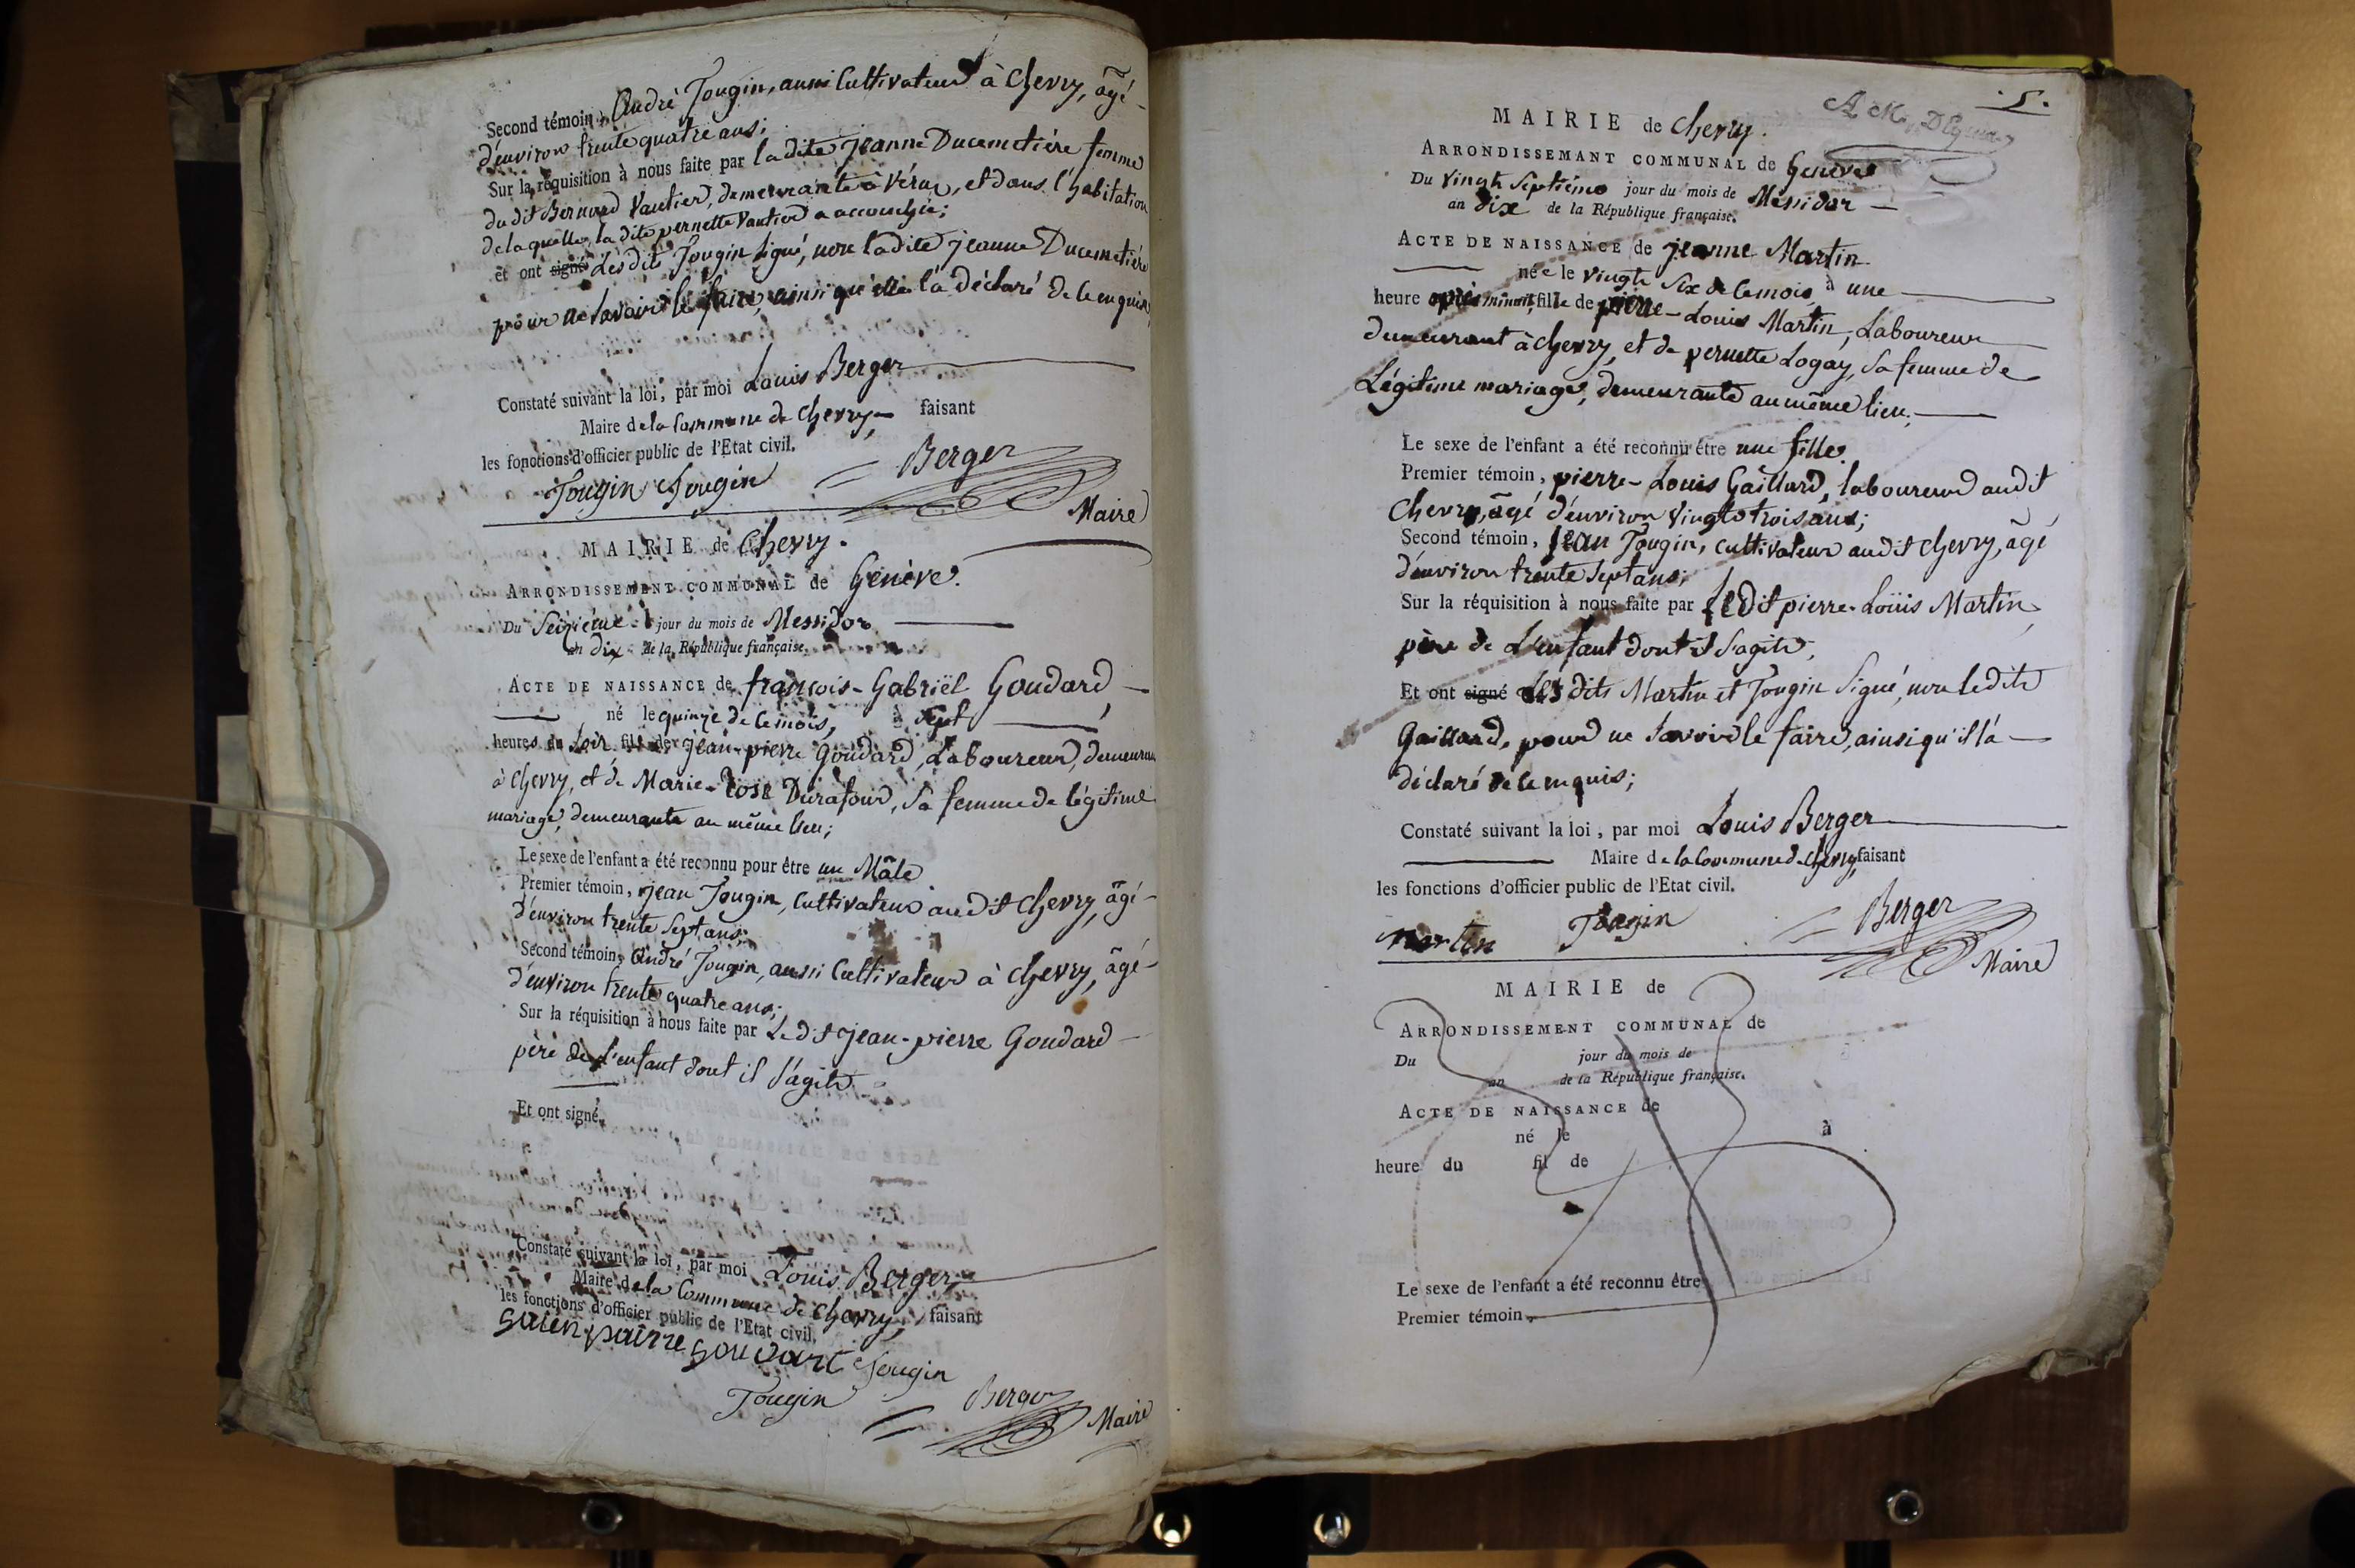 Second témoin, André Jougin, aussi Cultivateur à Chevry, âgé
d'environ trente quatre ans;
Sur la réquisition à nous faite par la dite jeanne Ducimetière femme
du dit Bernard Vautier, demeurante à Véraz, et dans l'habitation
de laquelle, la dite pernette Vautier a accouchée;
et ont signé Les dits Jougin signé, non ladite jeanne Ducimetière
pour ne savoir le faire, ainsi qu'elle l'a déclaré de ce enquise,
Constaté suivant la loi, par moi Louis Berger
Maire de la Commune de Chevry, faisant
les fonctions d'officier public de l'Etat civil.
Jougin Jougin Berger
Maire
MAIRIE de Chevry.
ARRONDISSEMENT COMMUNAL de Genève.
Du Seizième jour du mois de Messidor
an dix de la République française.
ACTE DE NAISSANCE de françois-Gabriël Goudard,
né le quinze de ce mois, à sept
heures du soir fils de jean-pierre Goudard, Laboureur, demeurant
à Chevry, et de Marie-Rose Durafour, sa femme de légitime
mariage, demeurante au même lieu;
Le sexe de l'enfant a été reconnu pour être un Mâle
Premier témoin, jean Jougin, Cultivateur au dit Chevry, âgé
d'environ trente sept ans;
Second témoin, André Jougin, aussi Cultivateur à Chevry, âgé
d'environ trente quatre ans;
Sur la réquisition à nous faite par Le dit jean-pierre Goudard
père de l'enfant dont il s'agite
Et ont signé.
Constaté suivant la loi, par moi Louis Berger
Maire de la Commune de Chevry, faisant
les fonctions d'officier public de l'Etat civil.
pairre goudart Jougin
Jougin Berger Maire
.5.
MAIRIE de Chevry.
ARRONDISSEMANT COMMUNAL de Genève
Du vingt Septième jour du mois de Messidor
an dix de la République française.
ACTE DE NAISSANCE de jeanne Martin
née le vingt Six de ce mois, à une
heure après minuit, fille de pierre-Louis Martin, Laboureur
demeurant à Chevry, et de pernette Logay, sa femme de
Légitime mariage, demeurante au même lieu;
Le sexe de l'enfant a été reconnu être une fille
Premier témoin, pierre-Louis Gaillard, laboureur audit
Chevry, âgé d'environ vingt trois ans;
Second témoin, jean Jougin, cultivateur audit Chevry, âgé
d'environ trente Sept ans;
Sur la réquisition à nous faite par ledit pierre-Loüis Martin,
père de L'enfant dont il s'agite,
Et ont signé Les dits Martin et Jougin signé, non ledit
Gaillard, pour ne savoir le faire, ainsi qu'il l'a
déclaré de ce enquis;
Constaté suivant la loi, par moi Louis Berger
Maire de la Commune de Chevry, faisant
les fonctions d'officier public de l'Etat civil.
martin Jougin Berger
Maire
MAIRIE de
ARRONDISSEMENT COMMUNAL de
Du jour du mois de
an de la République française.
ACTE DE NAISSANCE de
né le à
heure du fil de
Le sexe de l'enfant a été reconnu être
Premier témoin